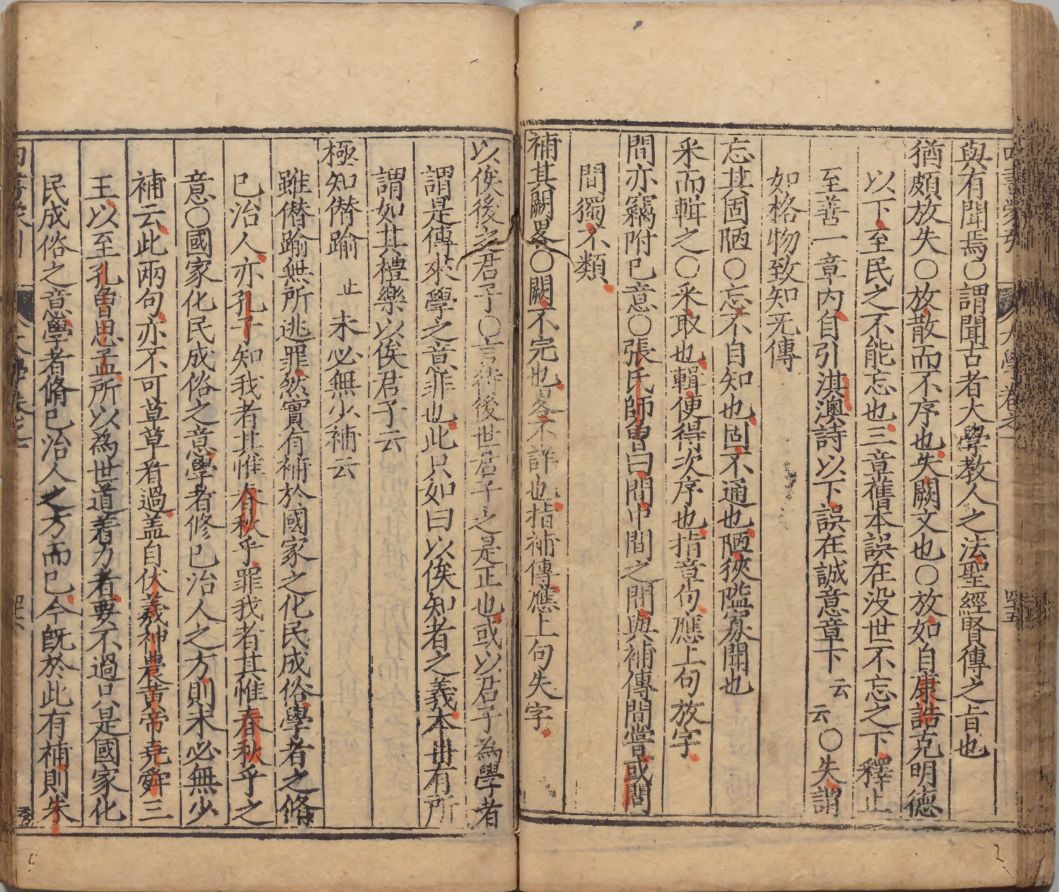 與有聞焉○謂聞古者大學教人之法聖經賢傳之旨也
猶頗放失○放散而不序也失闕文也○放如自康誥克明德
以下至民之不能忘也三章舊本誤在没世不忘之下釋止
至善一章内自引淇澳詩以下誤在誠意章下云云○失謂
如格物致知无傳
忘其固陋○忘不自知也固不通也陋狹隘寡聞也
釆而輯之○釆取也輯便得次序也指章句應上句放字
間亦竊附己意○張氏師曾曰間中間之間與補傳間嘗或問
間獨不類
補其闕畧○闕不完也畧不詳也指補傳應上句失字
以俟後之君子○言待後世君子之是正也或以君子為學者
謂是傳來學之意非也此只如曰以俟知者之義本註有所
謂如其禮樂以俟君子云
極知僭踰 止 未必無少補云
雖僭踰無所逃罪然實有補於國家之化民成俗學者之脩
己治人亦孔子知我者其惟春秋乎罪我者其惟春秋乎之
意○國家化民成俗之意學者修己治人之方則未必無少
補云此兩句亦不可草草看過盖自伏羲神農黄帝堯舜三
王以至孔曾思孟所以為世道着力者要不過只是國家化
民成俗之意學者脩己治人之方而已今旣於此有補則朱